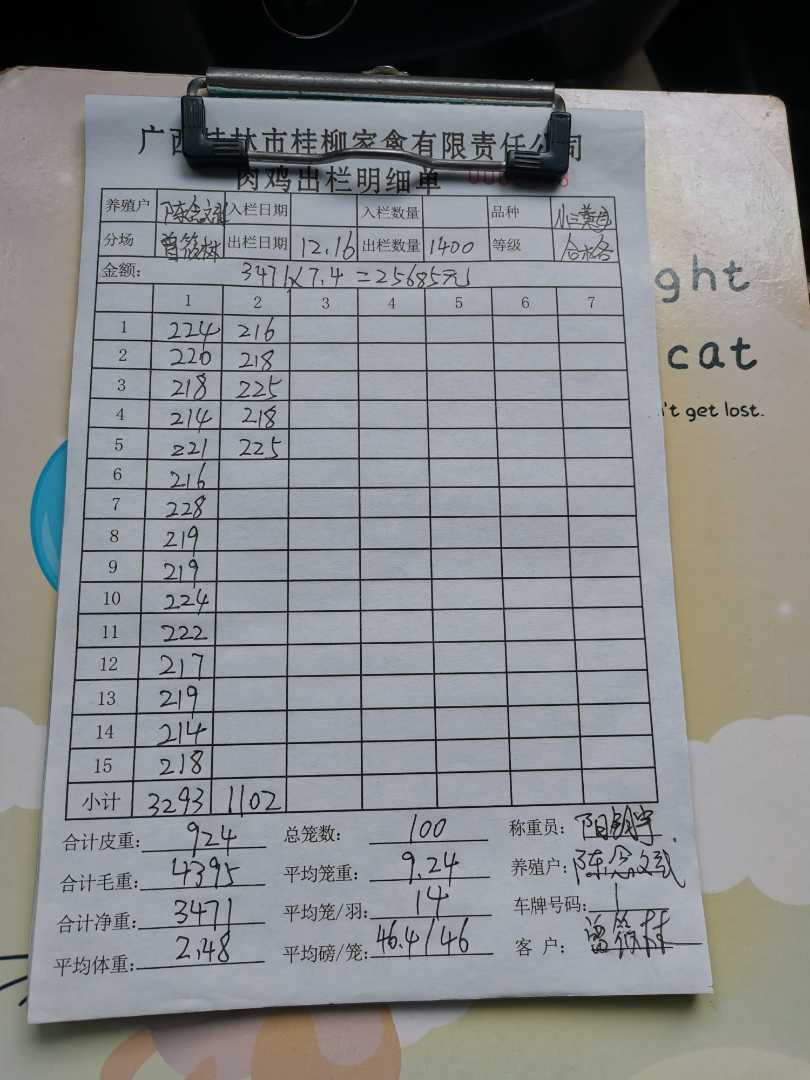 广西桂林市桂柳家禽有限责任公司
肉鸡出栏明细单
养殖户 陈念文 入栏日期 入栏数量 品种
分场 曾筱林 出栏日期 12.16 出栏数量 1400 等级 合格
金额: 3471×7.4=25685元
1 2 3 4 5 6 7
1 224 216
2 220 218
3 218 225
4 214 218
5 221 225
6 216
7 228
8 219
9 219
10 224
11 222
12 217
13 219
14 214
15 218
小计 3293 1102
合计皮重: 924 总笼数: 100 称重员:
合计毛重: 4395 平均笼重: 9.24 养殖户: 陈念文
合计净重: 3471 平均笼/羽: 14 车牌号码: 1
平均体重: 2.48 平均磅/笼: 46.4/46 客 户:
ght
cat
't get lost.